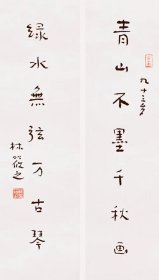 青山不墨千秋画
九十三岁
绿水無弦万古琴
林筱之